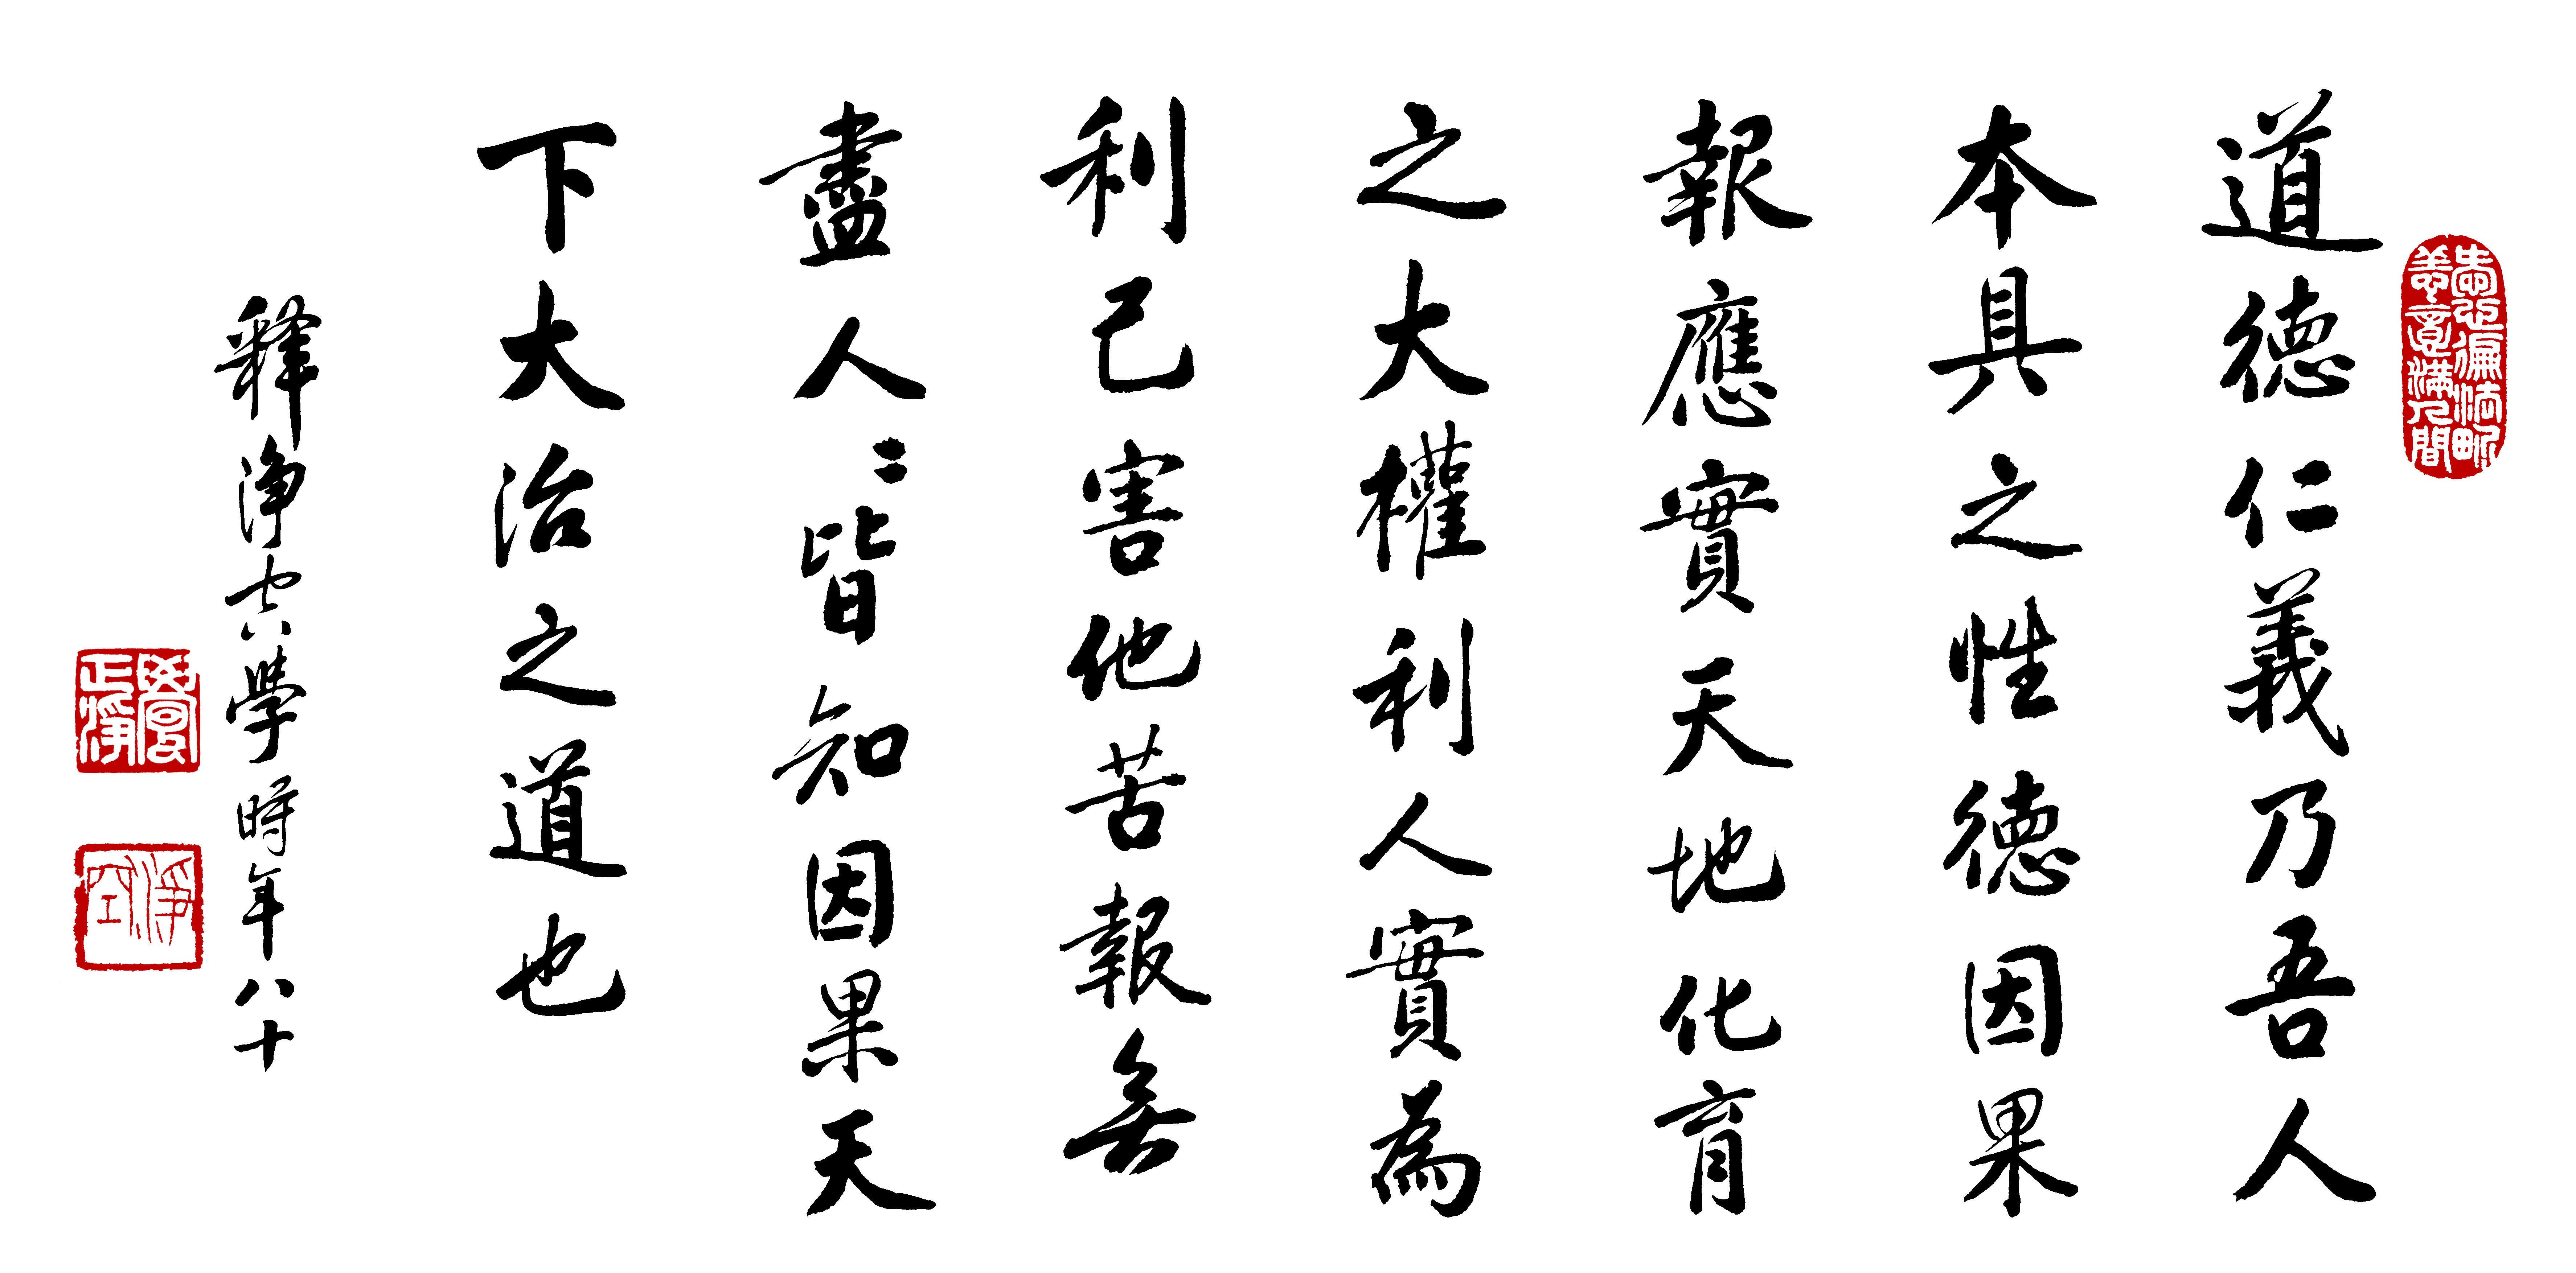 道德仁義乃吾人
本具之性德因果
報應實天地化育
之大權利人實為
利己害他苦報無
盡人〻皆知因果天
下大治之道也
释淨空學時年八十
淨空